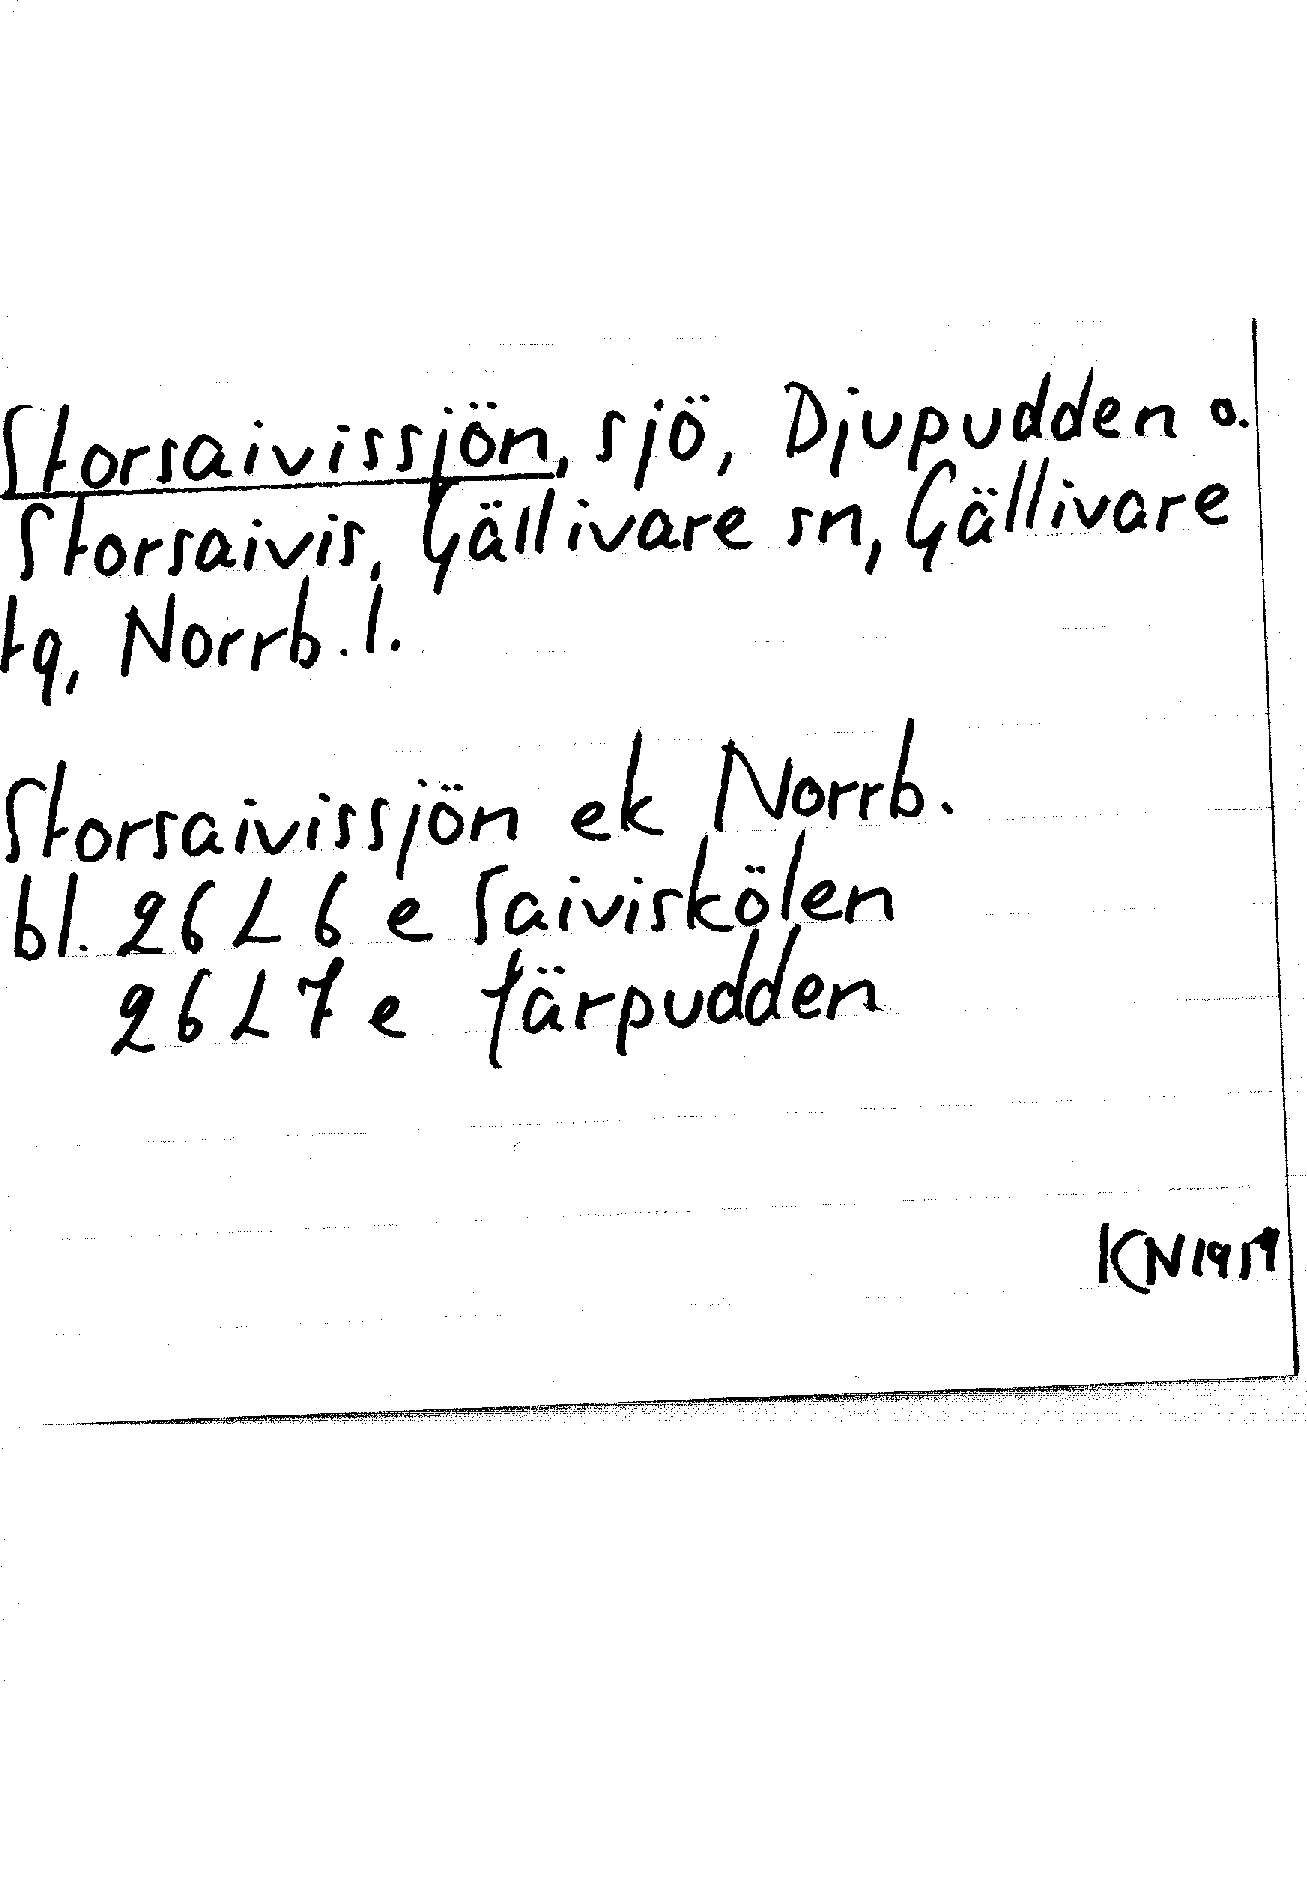 Storsaivissjön, sjö, Djupudden o.
Storsaivis, Gällivare sn, Gällivare
tg, Norrb. l.
Storsaivissjön ek Norrb.
bl. 26 L 6 e Saiviskölen
26 L 7 e Järpudden
KN 1959